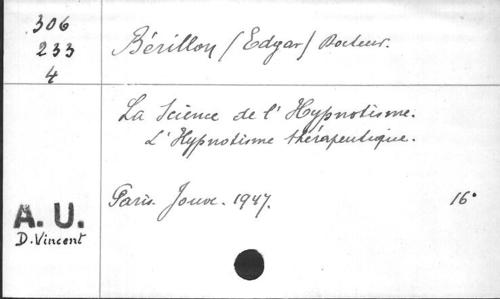 306
233
4
Bérillon (Edgar) Docteur.
La Science de l'Hypnotisme.
L'Hypnotisme thérapeutique.
Paris. Jouve. 1947. 16°
A. U.
D. Vincent